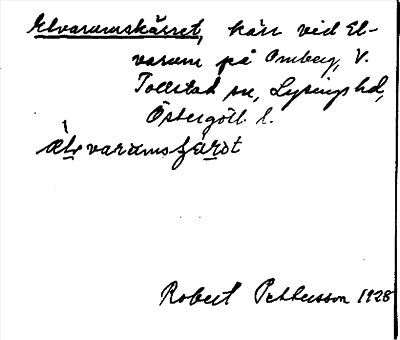 Elvarumskärret, kärr vid El-
varum på Omberg, V.
Tollstad sn, Lysings hd,
Östergötl. l.
ælvarumsʃärət
Robert Pettersson 1928